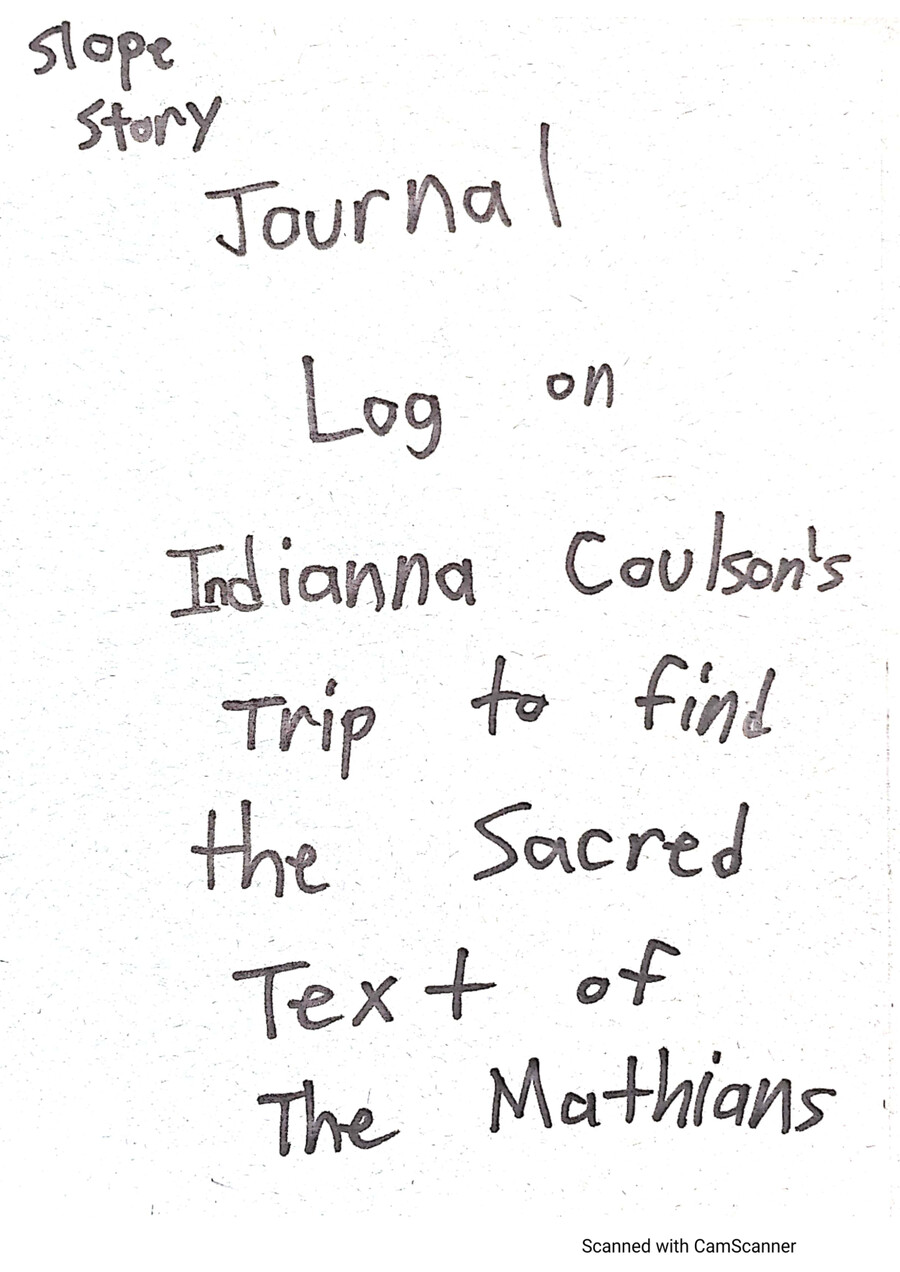 Slope
Story
Journal
Log on
Indianna Coulson's
Trip to find
the Sacred
Text of
The Mathians
Scanned with CamScanner